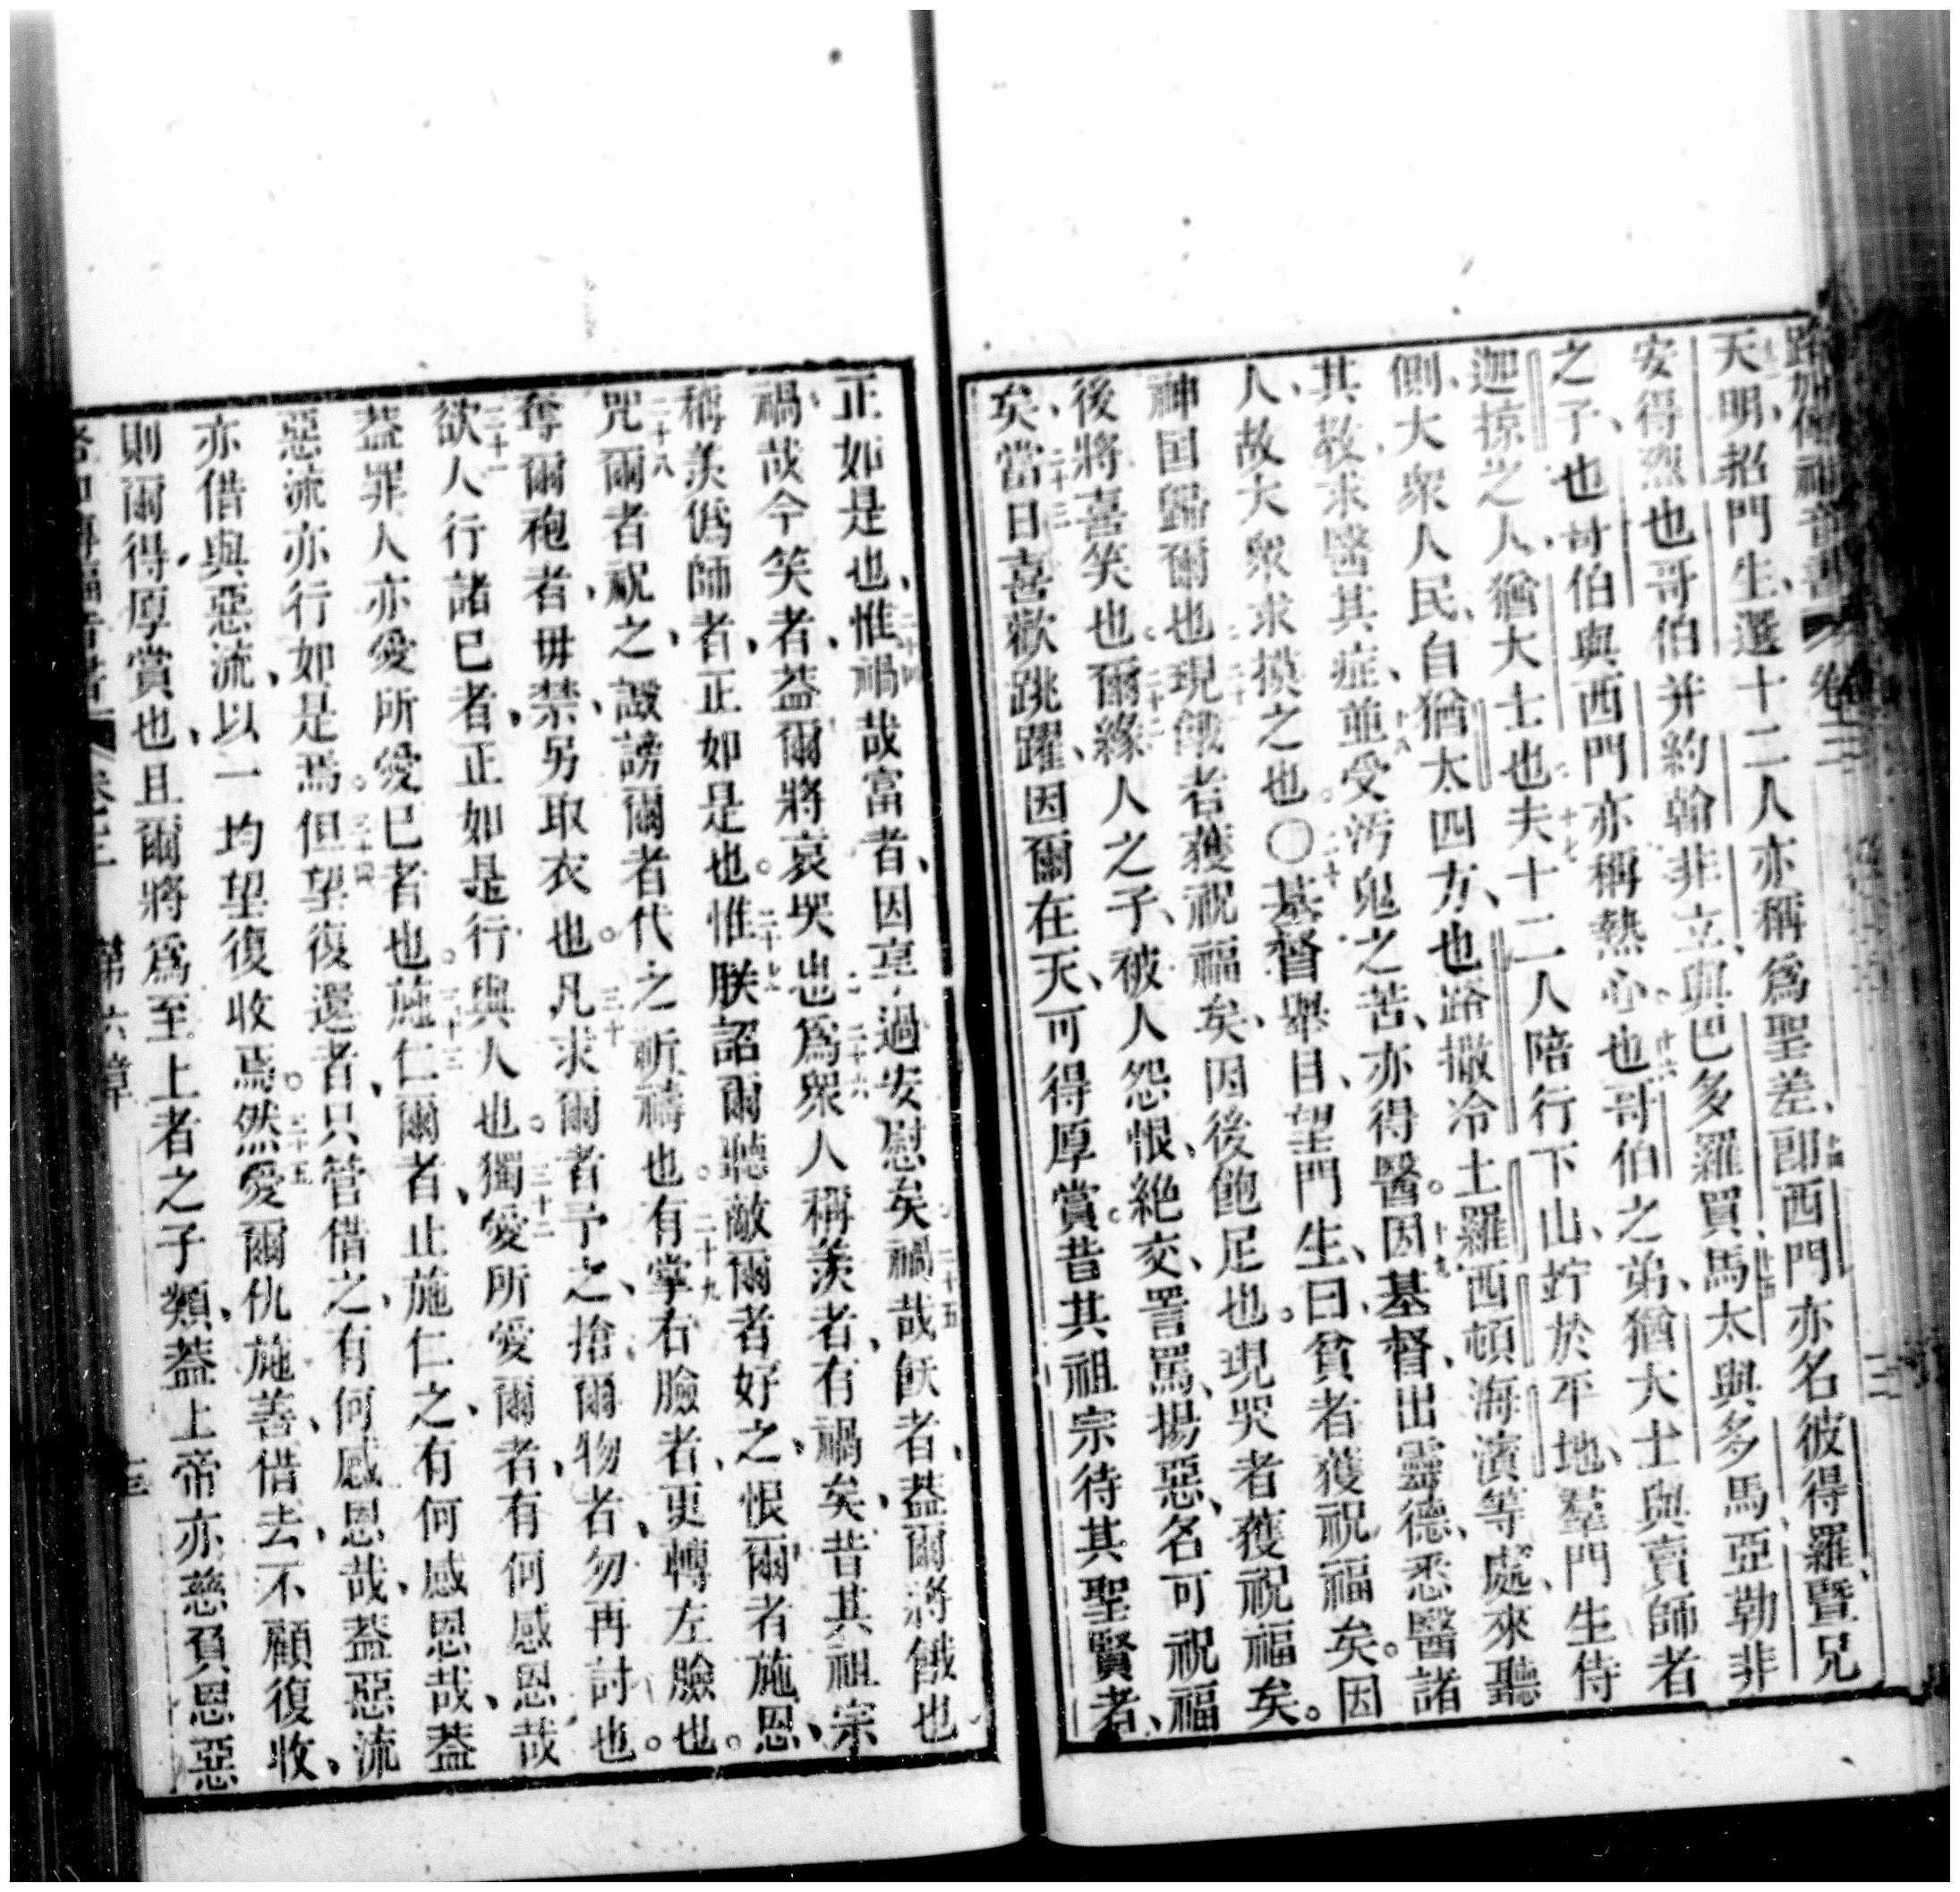 路加傳福音書 卷三
天明、招門生、選十二人、亦稱爲聖差、卽西門亦名彼得羅、暨兄
安得烈也、哥伯并約翰、非立、與巴多羅買、馬太與多馬、亞勒非
之子哥伯與西門亦稱熱心也、哥伯之弟、猶大士與賣師者
迦掠之人、猶大士也。夫十二人陪行下山、竚於平地、羣門生侍
側、大衆人民、自猶太四方、也路撒冷、土羅西頓海濱等處、來聽
其敎、求醫其症、並受污鬼之苦、亦得醫。因基督、出靈德、悉醫諸
人、故大衆求摸之也。〇基督舉目、望門生、曰、貧者獲祝福矣。因
神国歸爾也。現餓者獲祝福矣、因後飽足也。現哭者獲祝福矣。
後將喜笑也。爾緣人之子、被人怨恨、絕交、詈罵、揚惡、名可祝福
矣、當日喜歡跳躍、因爾在天、可得厚賞。昔其祖宗待其聖賢者、
正如是也、惟禍哉富者、因享過安慰矣。禍哉飫者、葢爾將餓也
禍哉今笑者、葢爾將哀哭也。爲衆人稱羨者、有禍矣、昔其祖宗
稱羨僞師者、正如是也。惟朕詔爾聽、敵爾者好之、恨爾者施恩、
咒爾者祝之、譭謗爾者代之祈禱也。有掌右臉者、更轉左臉也。
奪爾袍者、毋禁、另取衣也。凡求爾者予之、搶爾物者、勿再討也。
欲人行諸巳者、正如是行與人也。獨愛所愛爾者、有何感恩哉
葢罪人亦愛所愛巳者也。施仁爾者、止施仁之、有何感恩哉、葢
惡流亦行如是焉。但望復還者、只管借之、有何感恩哉、葢惡流
亦借與惡流、以一均望復收焉。然愛爾仇施善、借去、不顧復收、
則爾得厚賞也、且爾將爲至上者之子類、葢上帝亦慈負恩惡
卷三 第六章